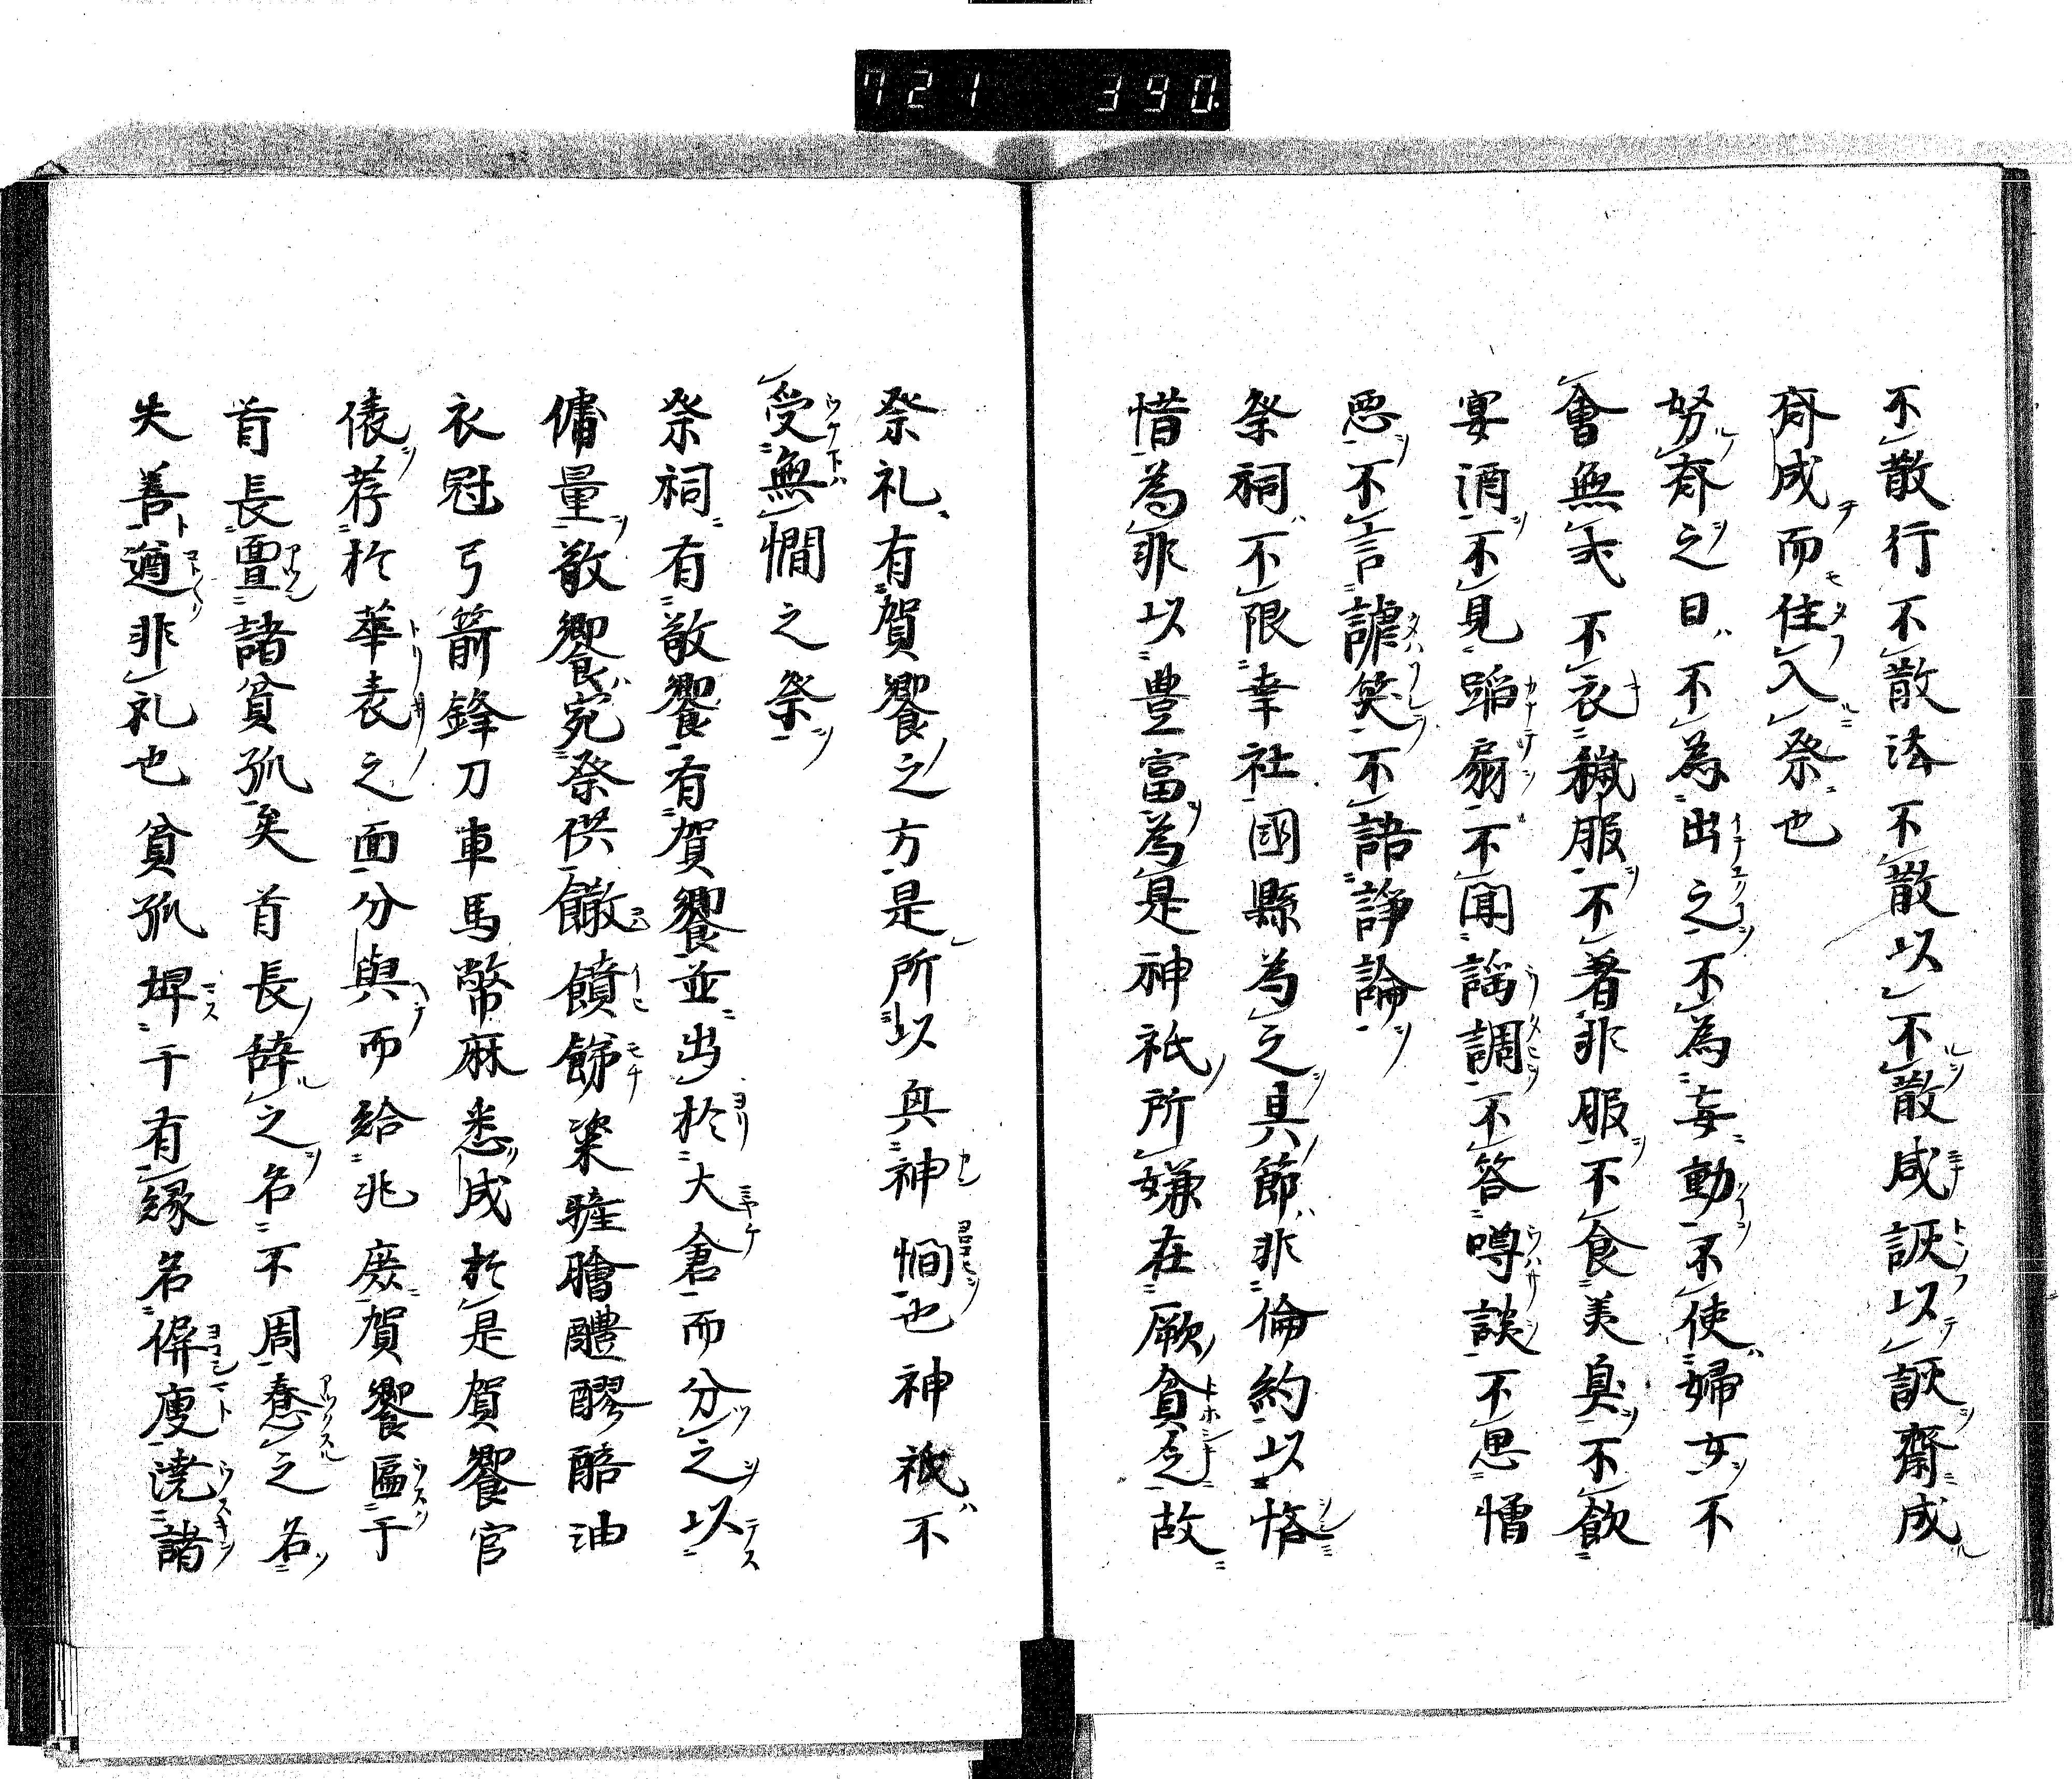 721 390
不散行不散法不散以不散咸訳以訳齋成
斎成而住入祭也
努斎之日不為出之不為妄動不使婦女不
會無 不衣穢服不著非服不食美臭不飲
宴酒不見蹈扇不聞謡調不答噂談不思憎
悪不言謔笑不語諍論
祭祠不限幸社國縣為之具節非倫約以悋
惜為非以豊富為是神祇所嫌在厥貧乏故
祭礼有賀饗之方是所以真神憪也神祇不
受無憪之祭
祭祠有散饗有賀饗並出於大倉而分之以
備量散饗宛祭供饊饙餙粢 膾醴醪醅油
衣冠弓箭鋒刀車馬幣麻悉成於是賀饗官
俵荐於華表之面分與而給兆庶賀饗匾于
首長 諸貧孤矣首長辞之名不周惷之名
失善遒非礼也貧孤埤于有縁名偋廋澆諸